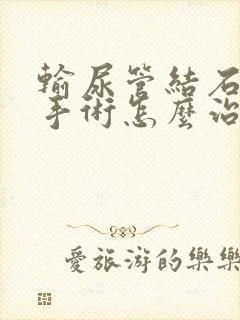 輸尿管結石
手術怎麼治
愛旅游的樂樂